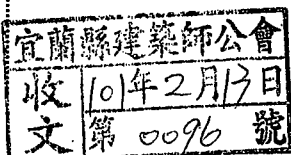 宜蘭縣建築師公會
收文 101年2月13日
第 0096 號